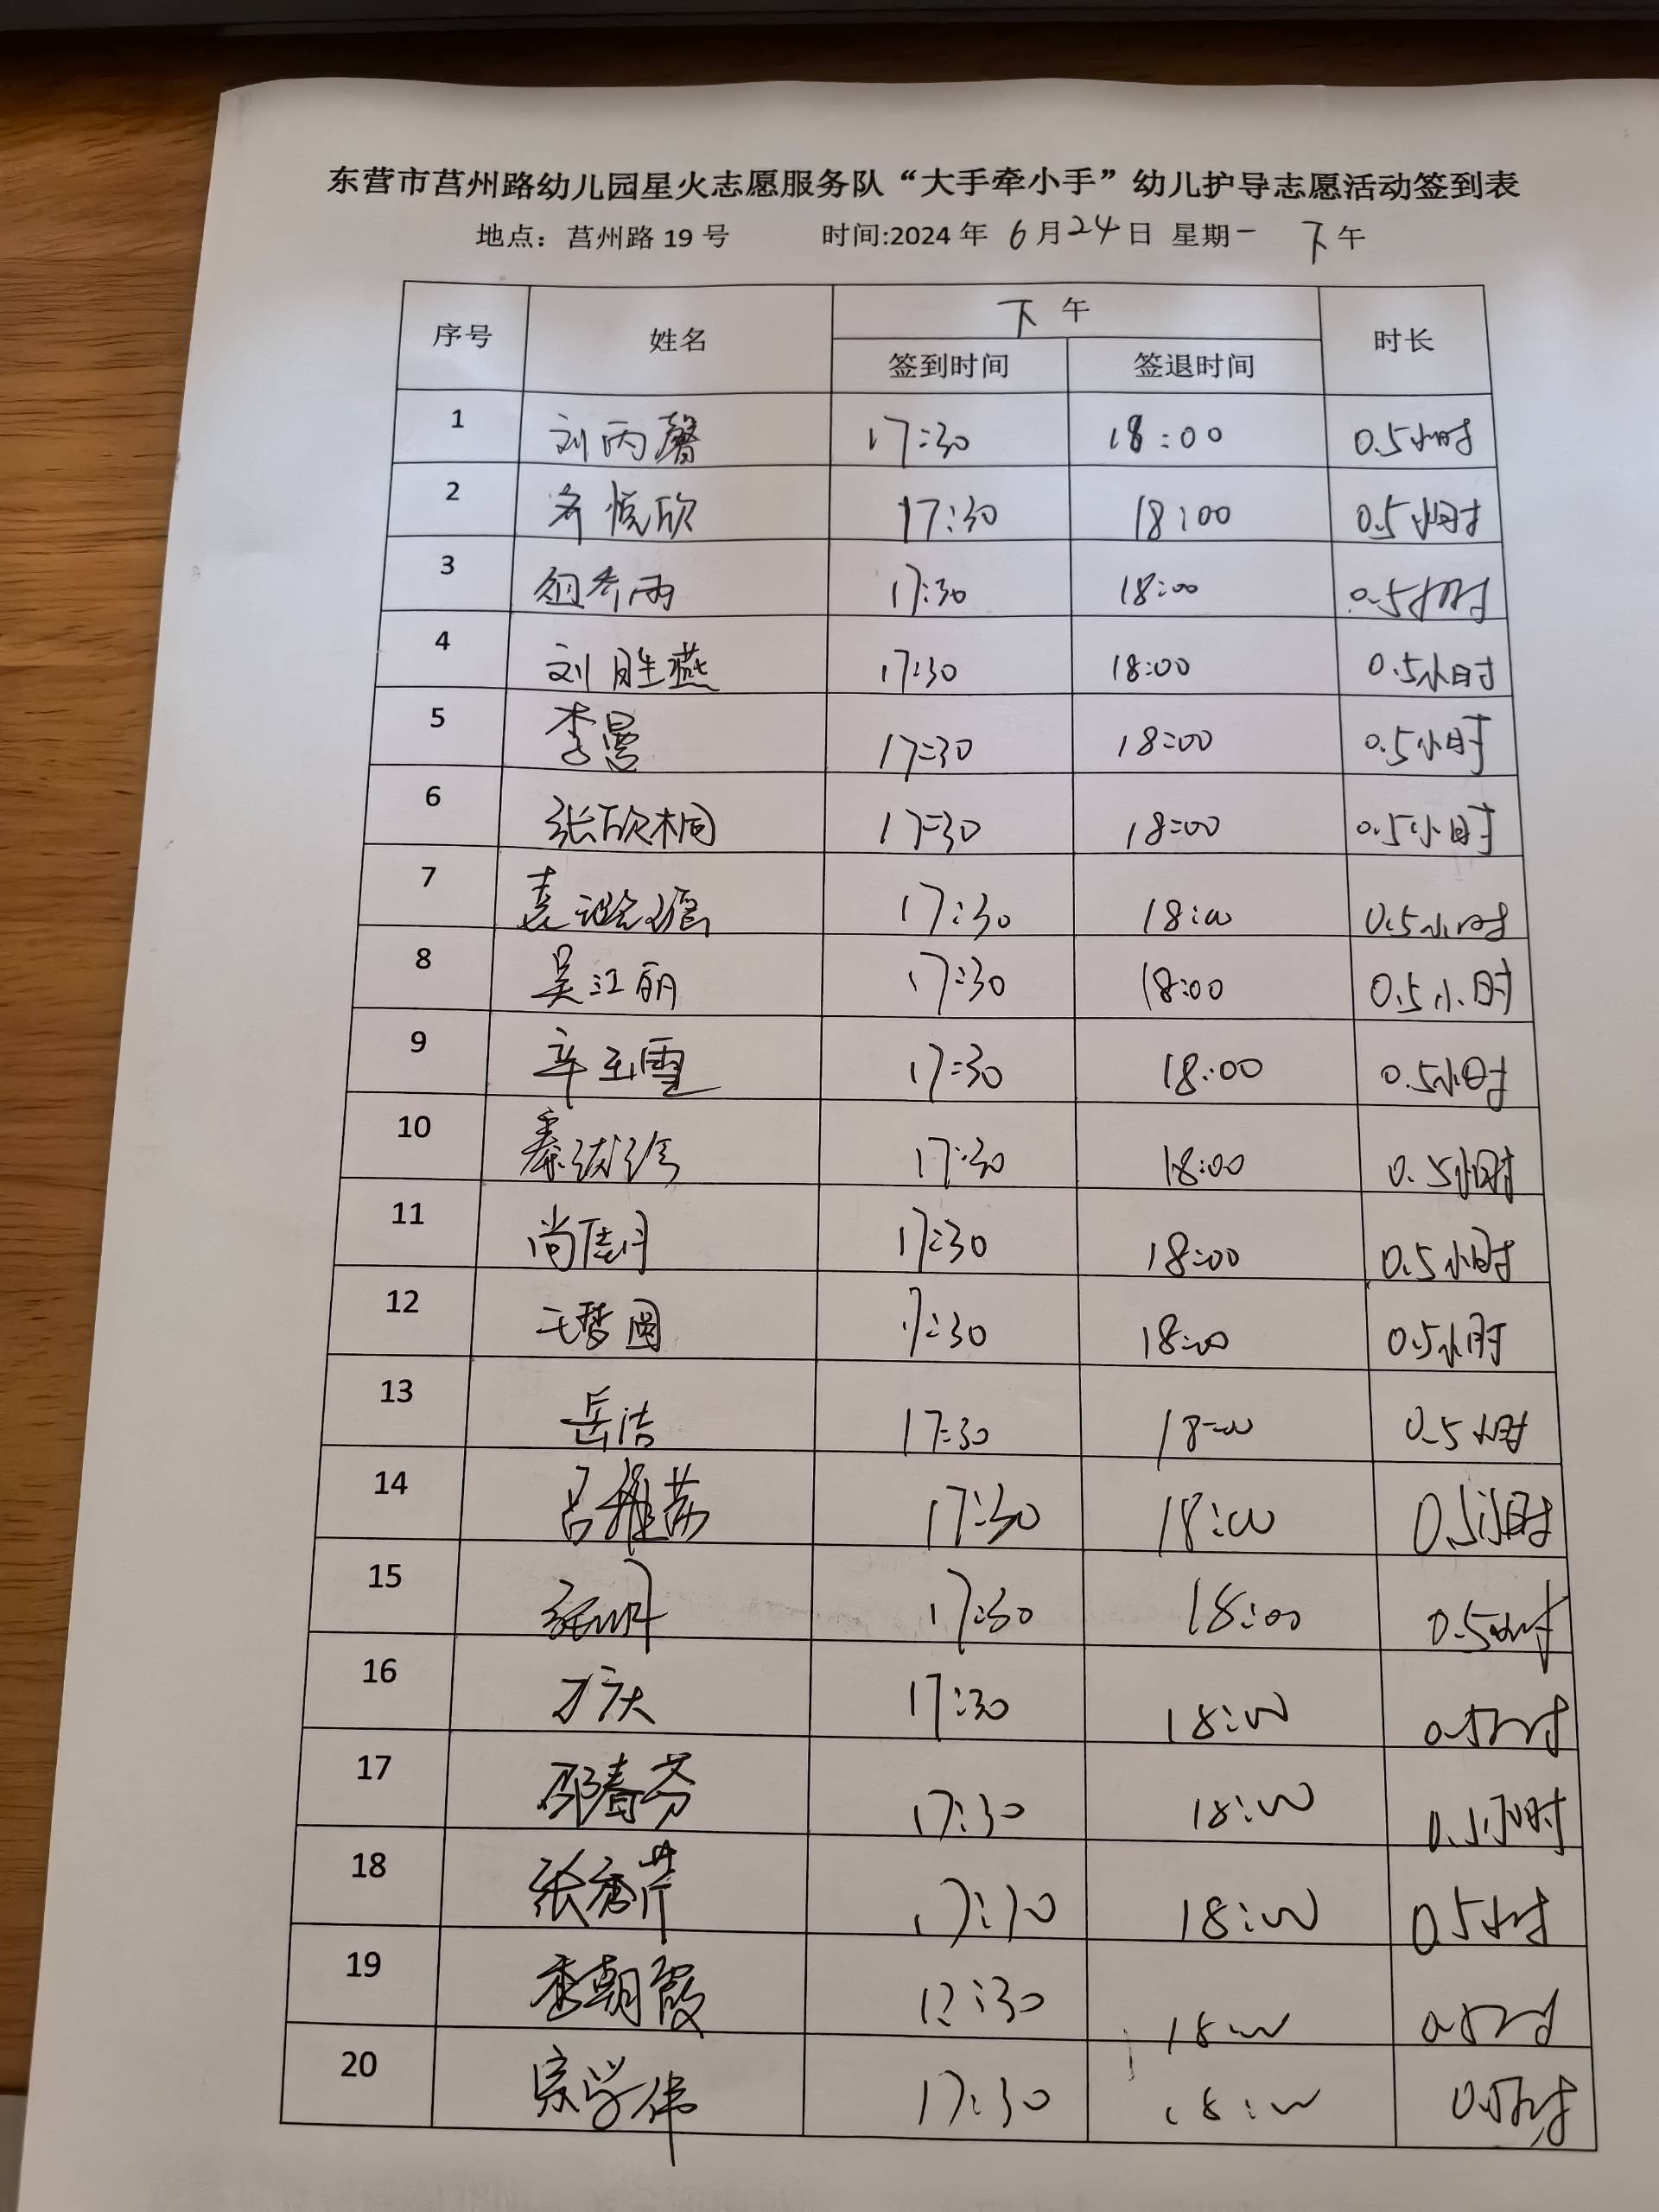 东营市莒州路幼儿园星火志愿服务队“大手牵小手”幼儿护导志愿活动签到表
地点：莒州路 19 号 时间:2024 年 6 月 24 日 星期一 下午
序号 姓名 下午 时长
签到时间 签退时间
1 刘丙馨 17:30 18:00 0.5小时
2 齐悦欣 17:30 18:00 0.5小时
3 17:30 18:00 0.5小时
4 刘胜燕 17:30 18:00 0.5小时
5 李曼 17:30 18:00 0.5小时
6 张欣桐 17:30 18:00 0.5小时
7 17:30 18:00 0.5小时
8 吴江丽 17:30 18:00 0.5小时
9 辛玉雪 17:30 18:00 0.5小时
10 秦 17:30 18:00 0.5小时
11 尚佳月 17:30 18:00 0.5小时
12 王梦圆 17:30 18:00 0.5小时
13 岳洁 17:30 18:00 0.5小时
14 吕雅茹 17:30 18:00 0.5小时
15 17:30 18:00 0.5小时
16 17:30 18:00 0.5小时
17 邵春芬 17:30 18:00 0.5小时
18 张秀芹 17:30 18:00 0.5小时
19 李朝霞 17:30 18:00 0.5小时
20 宗学伟 17:30 18:00 0.5小时